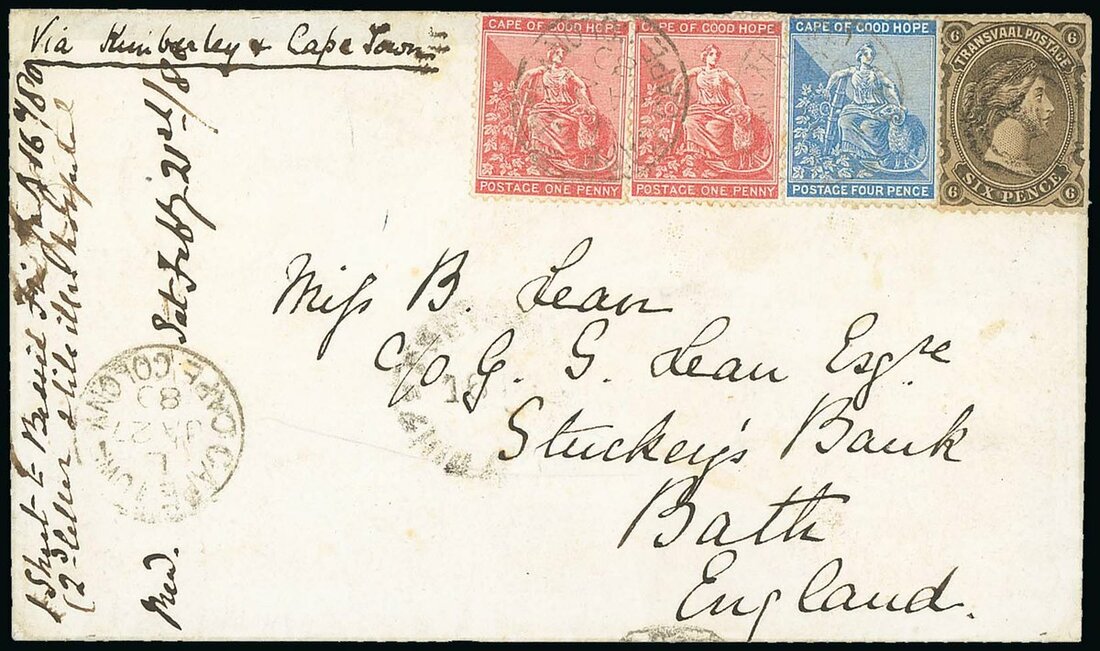 Via Kimberley & Cape Town
CAPE OF GOOD HOPE
POSTAGE ONE PENNY
CAPE OF GOOD HOPE
POSTAGE ONE PENNY
CAPE OF GOOD HOPE
POSTAGE FOUR PENCE
6 TRANSVAAL POSTAGE 6
6 SIX PENCE 6
Miss B. Lean
c/o G. S. Lean Esqre
Stuckey's Bank
Bath
England.
1 Sheet to
(2 letter
Recd. Sat Feby 21st/80
CAPE COLONY
80
JA 27